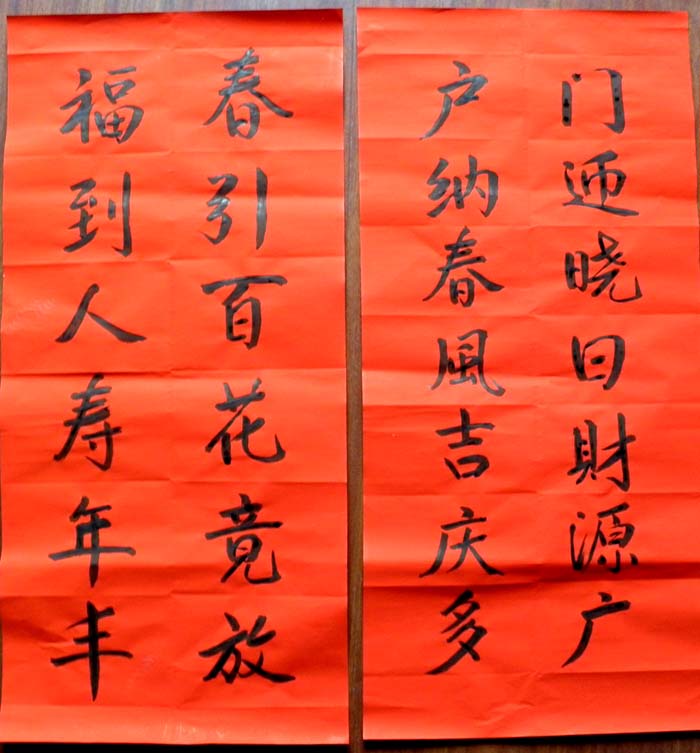 门迎晓日財源广
户纳春風吉庆多
春引百花竟放
福到人寿年丰